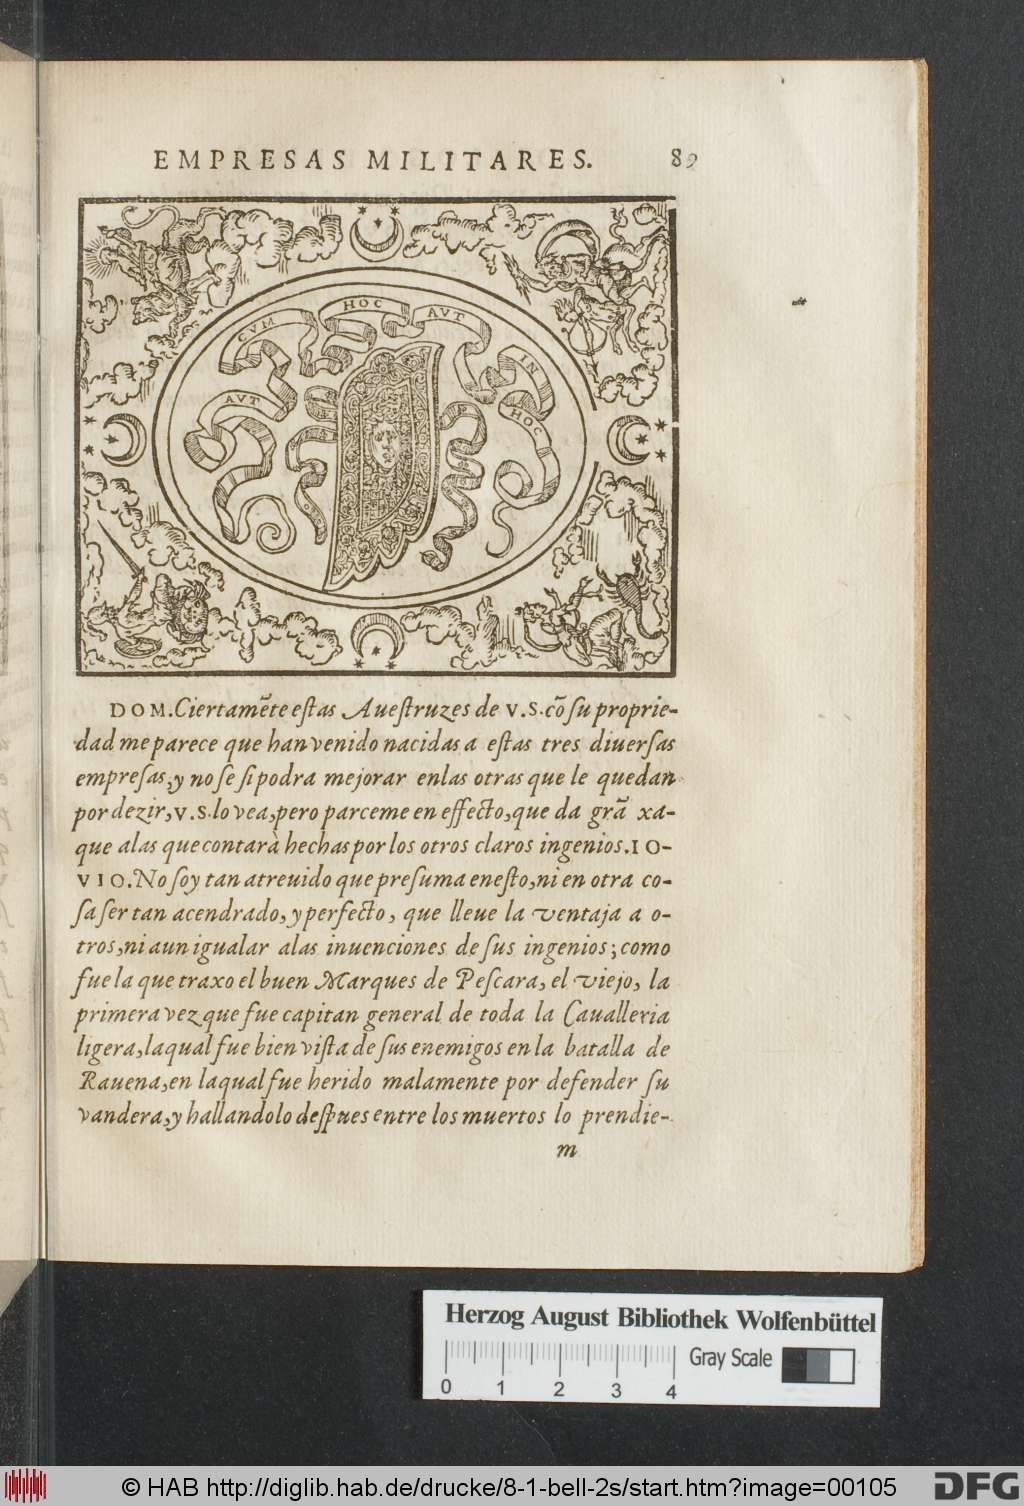 EMPRESAS MILITARES. 89
AVT CVM HOC AVT IN HOC
DOM. Ciertamẽte estas Auestruzes de V.S. cõ su proprie-
dad me parece que han venido nacidas a estas tres diuersas
empresas, y no se si podra mejorar enlas otras que le quedan
por dezir, V.S. lo vea, pero parceme en effecto, que da grã xa-
que alas que contarà hechas por los otros claros ingenios. IO-
VIO. No soy tan atreuido que presuma enesto, ni en otra co-
sa ser tan acendrado, y perfecto, que lleue la ventaja a o-
tros, ni aun igualar alas inuenciones de sus ingenios; como
fue la que traxo el buen Marques de Pescara, el viejo, la
primera vez que fue capitan general de toda la Caualleria
ligera, laqual fue bien vista de sus enemigos en la batalla de
Rauena, en laqual fue herido malamente por defender su
vandera, y hallandolo despues entre los muertos lo prendie-
m
Herzog August Bibliothek Wolfenbüttel
0 1 2 3 4 Gray Scale
© HAB http://diglib.hab.de/drucke/8-1-bell-2s/start.htm?image=00105 DFG